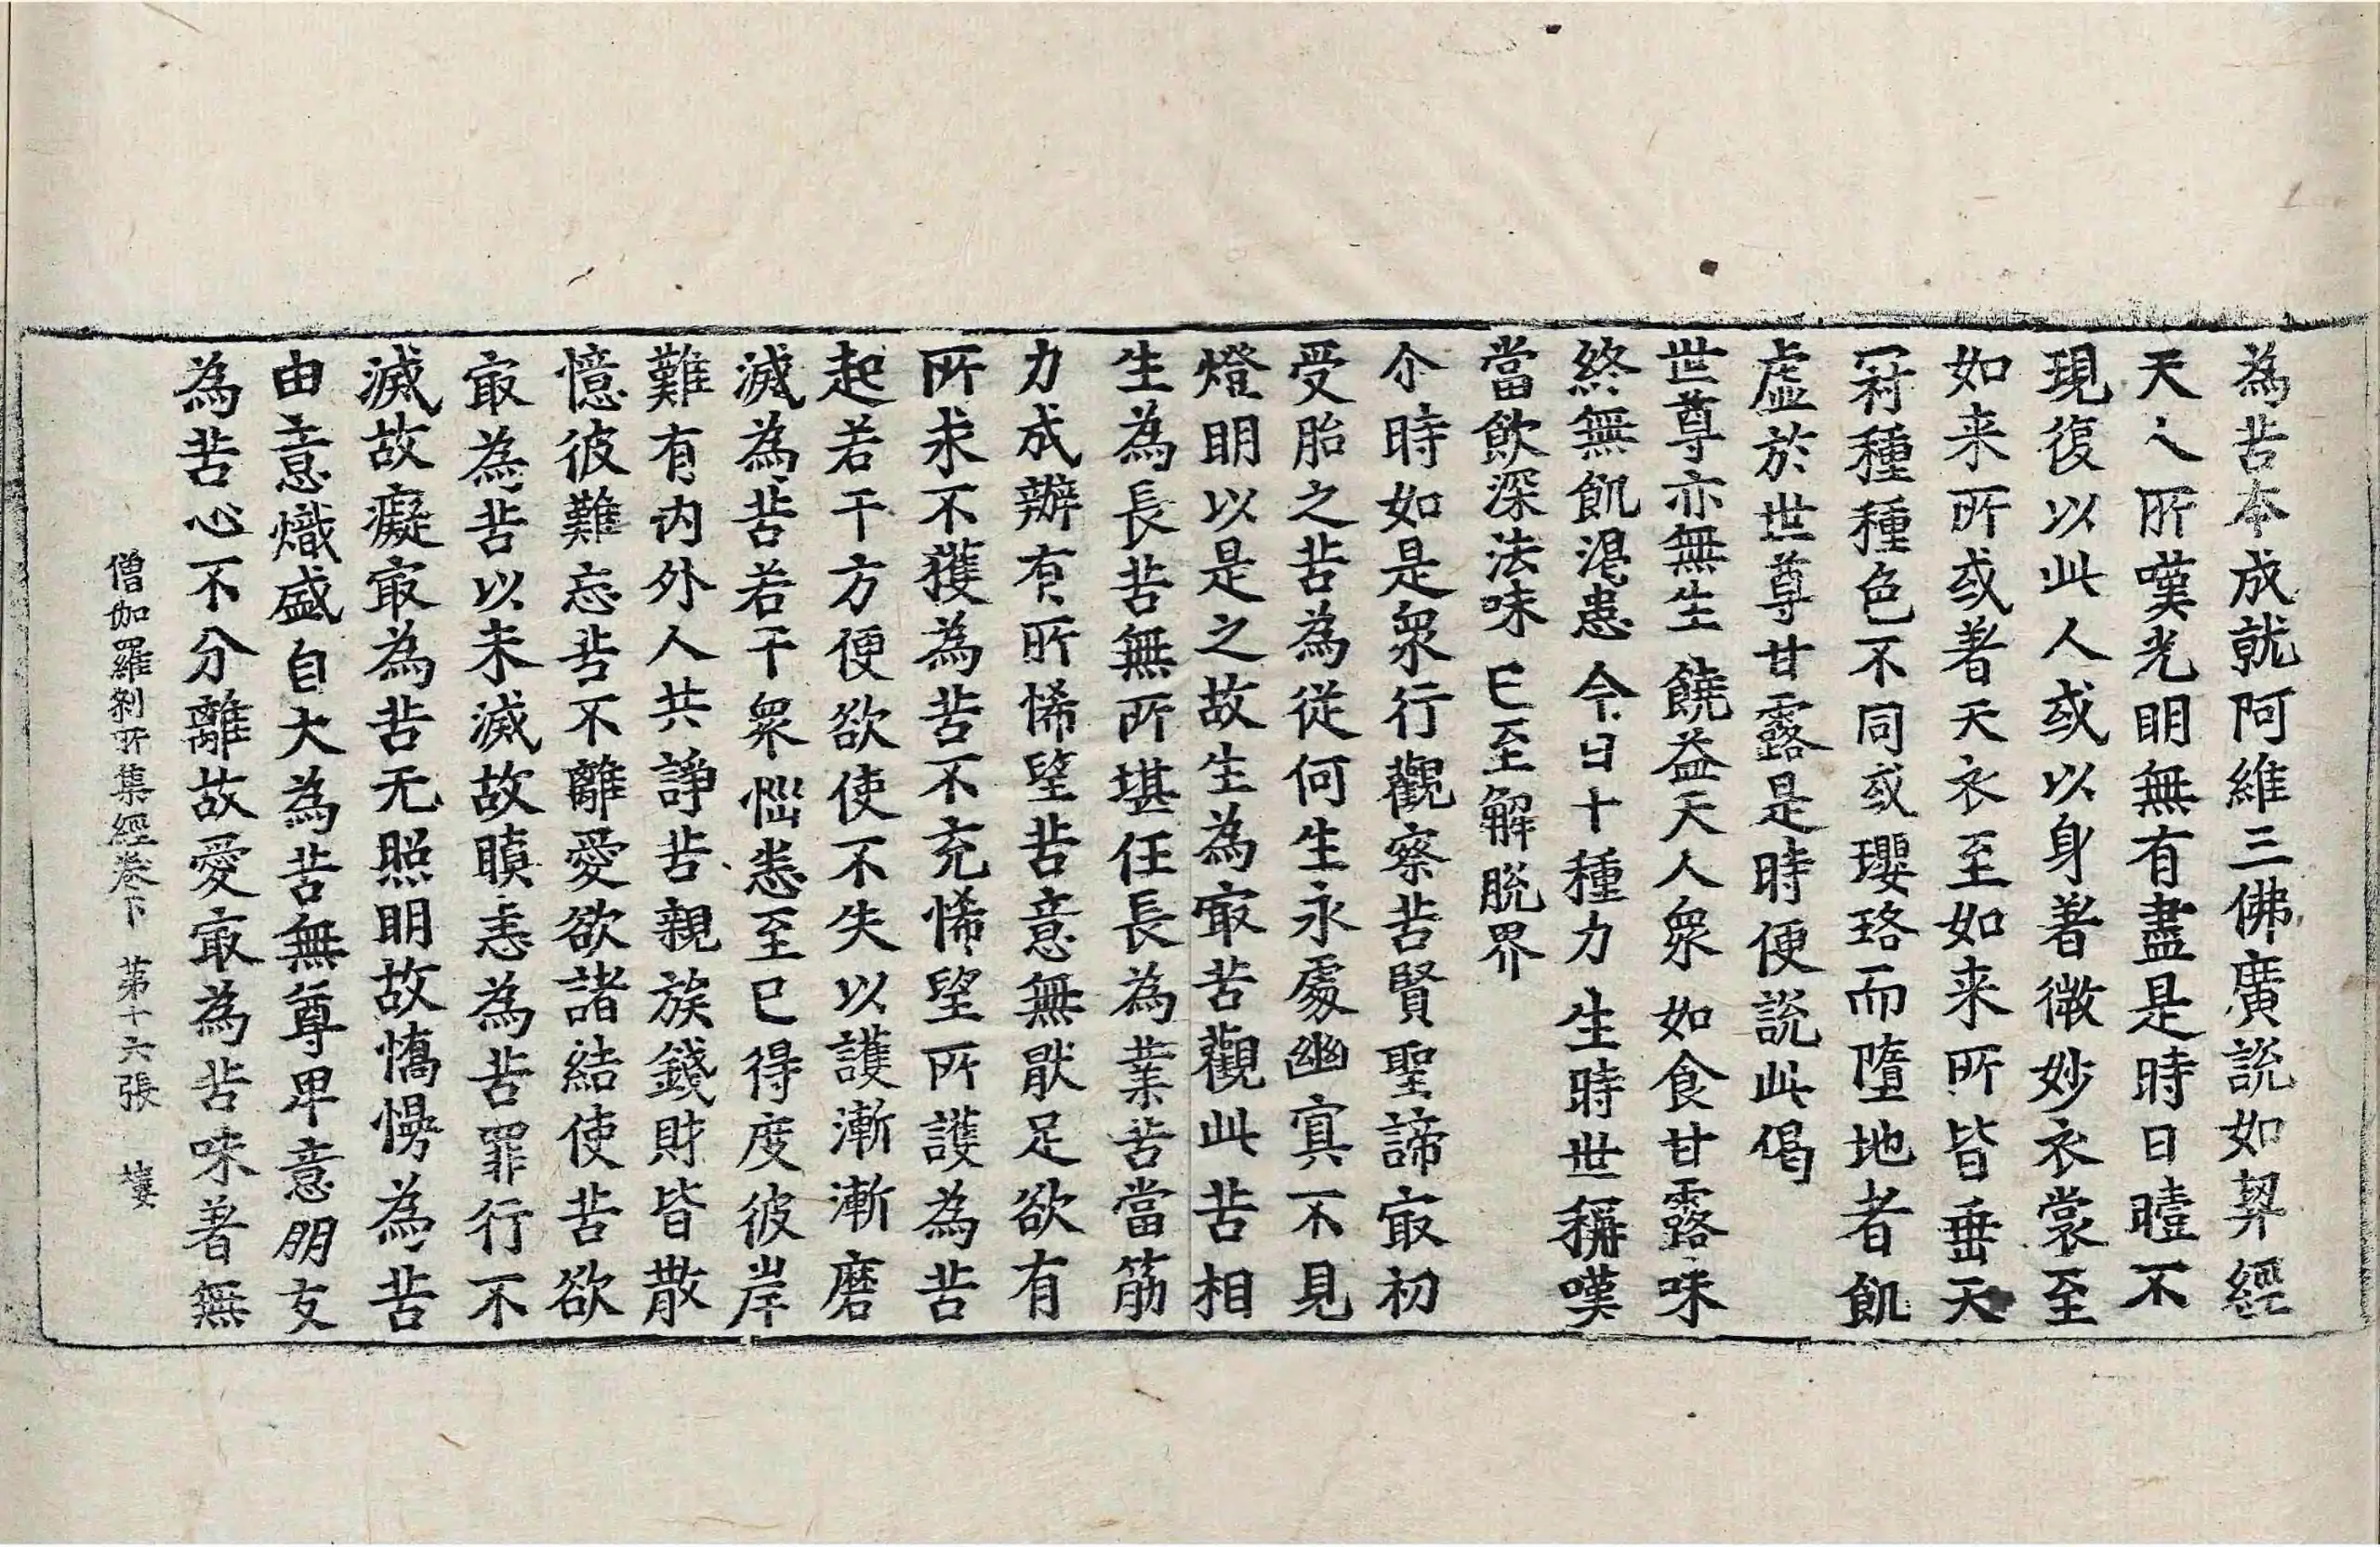 為苦本成就阿維三佛廣說如契經
天人所嘆光明無有盡是時日曀不
現復以此人或以身著微妙衣裳至
如来所或著天衣至如来所皆垂天
冠種種色不同或瓔珞而墮地者飢
虛於世尊甘露是時便說此偈
世尊亦無生 饒益天人眾 如食甘露味
終無飢渴患 今日十種力 生時世稱嘆
當飲深法味 已至解脫界
尒時如是眾行觀察苦賢聖諦㝡初
受胎之苦為從何生永處幽冥不見
燈明以是之故生為㝡苦觀此苦相
生為長苦無所堪任長為業苦當筋
力成辦有所悕望苦意無猒足欲有
所求不獲為苦不充悕望所護為苦
起若干方便欲使不失以護漸漸磨
滅為苦若干眾惱恚至已得度彼岸
難有內外人共諍苦親族錢財皆散
憶彼難忘苦不離愛欲諸結使苦欲
㝡為苦以未滅故瞋恚為苦罪行不
滅故癡㝡為苦无照明故憍慢為苦
由意熾盛自大為苦無尊卑意朋友
為苦心不分離故愛㝡為苦味著無
僧伽羅剎所集經卷下 第十六張 墳